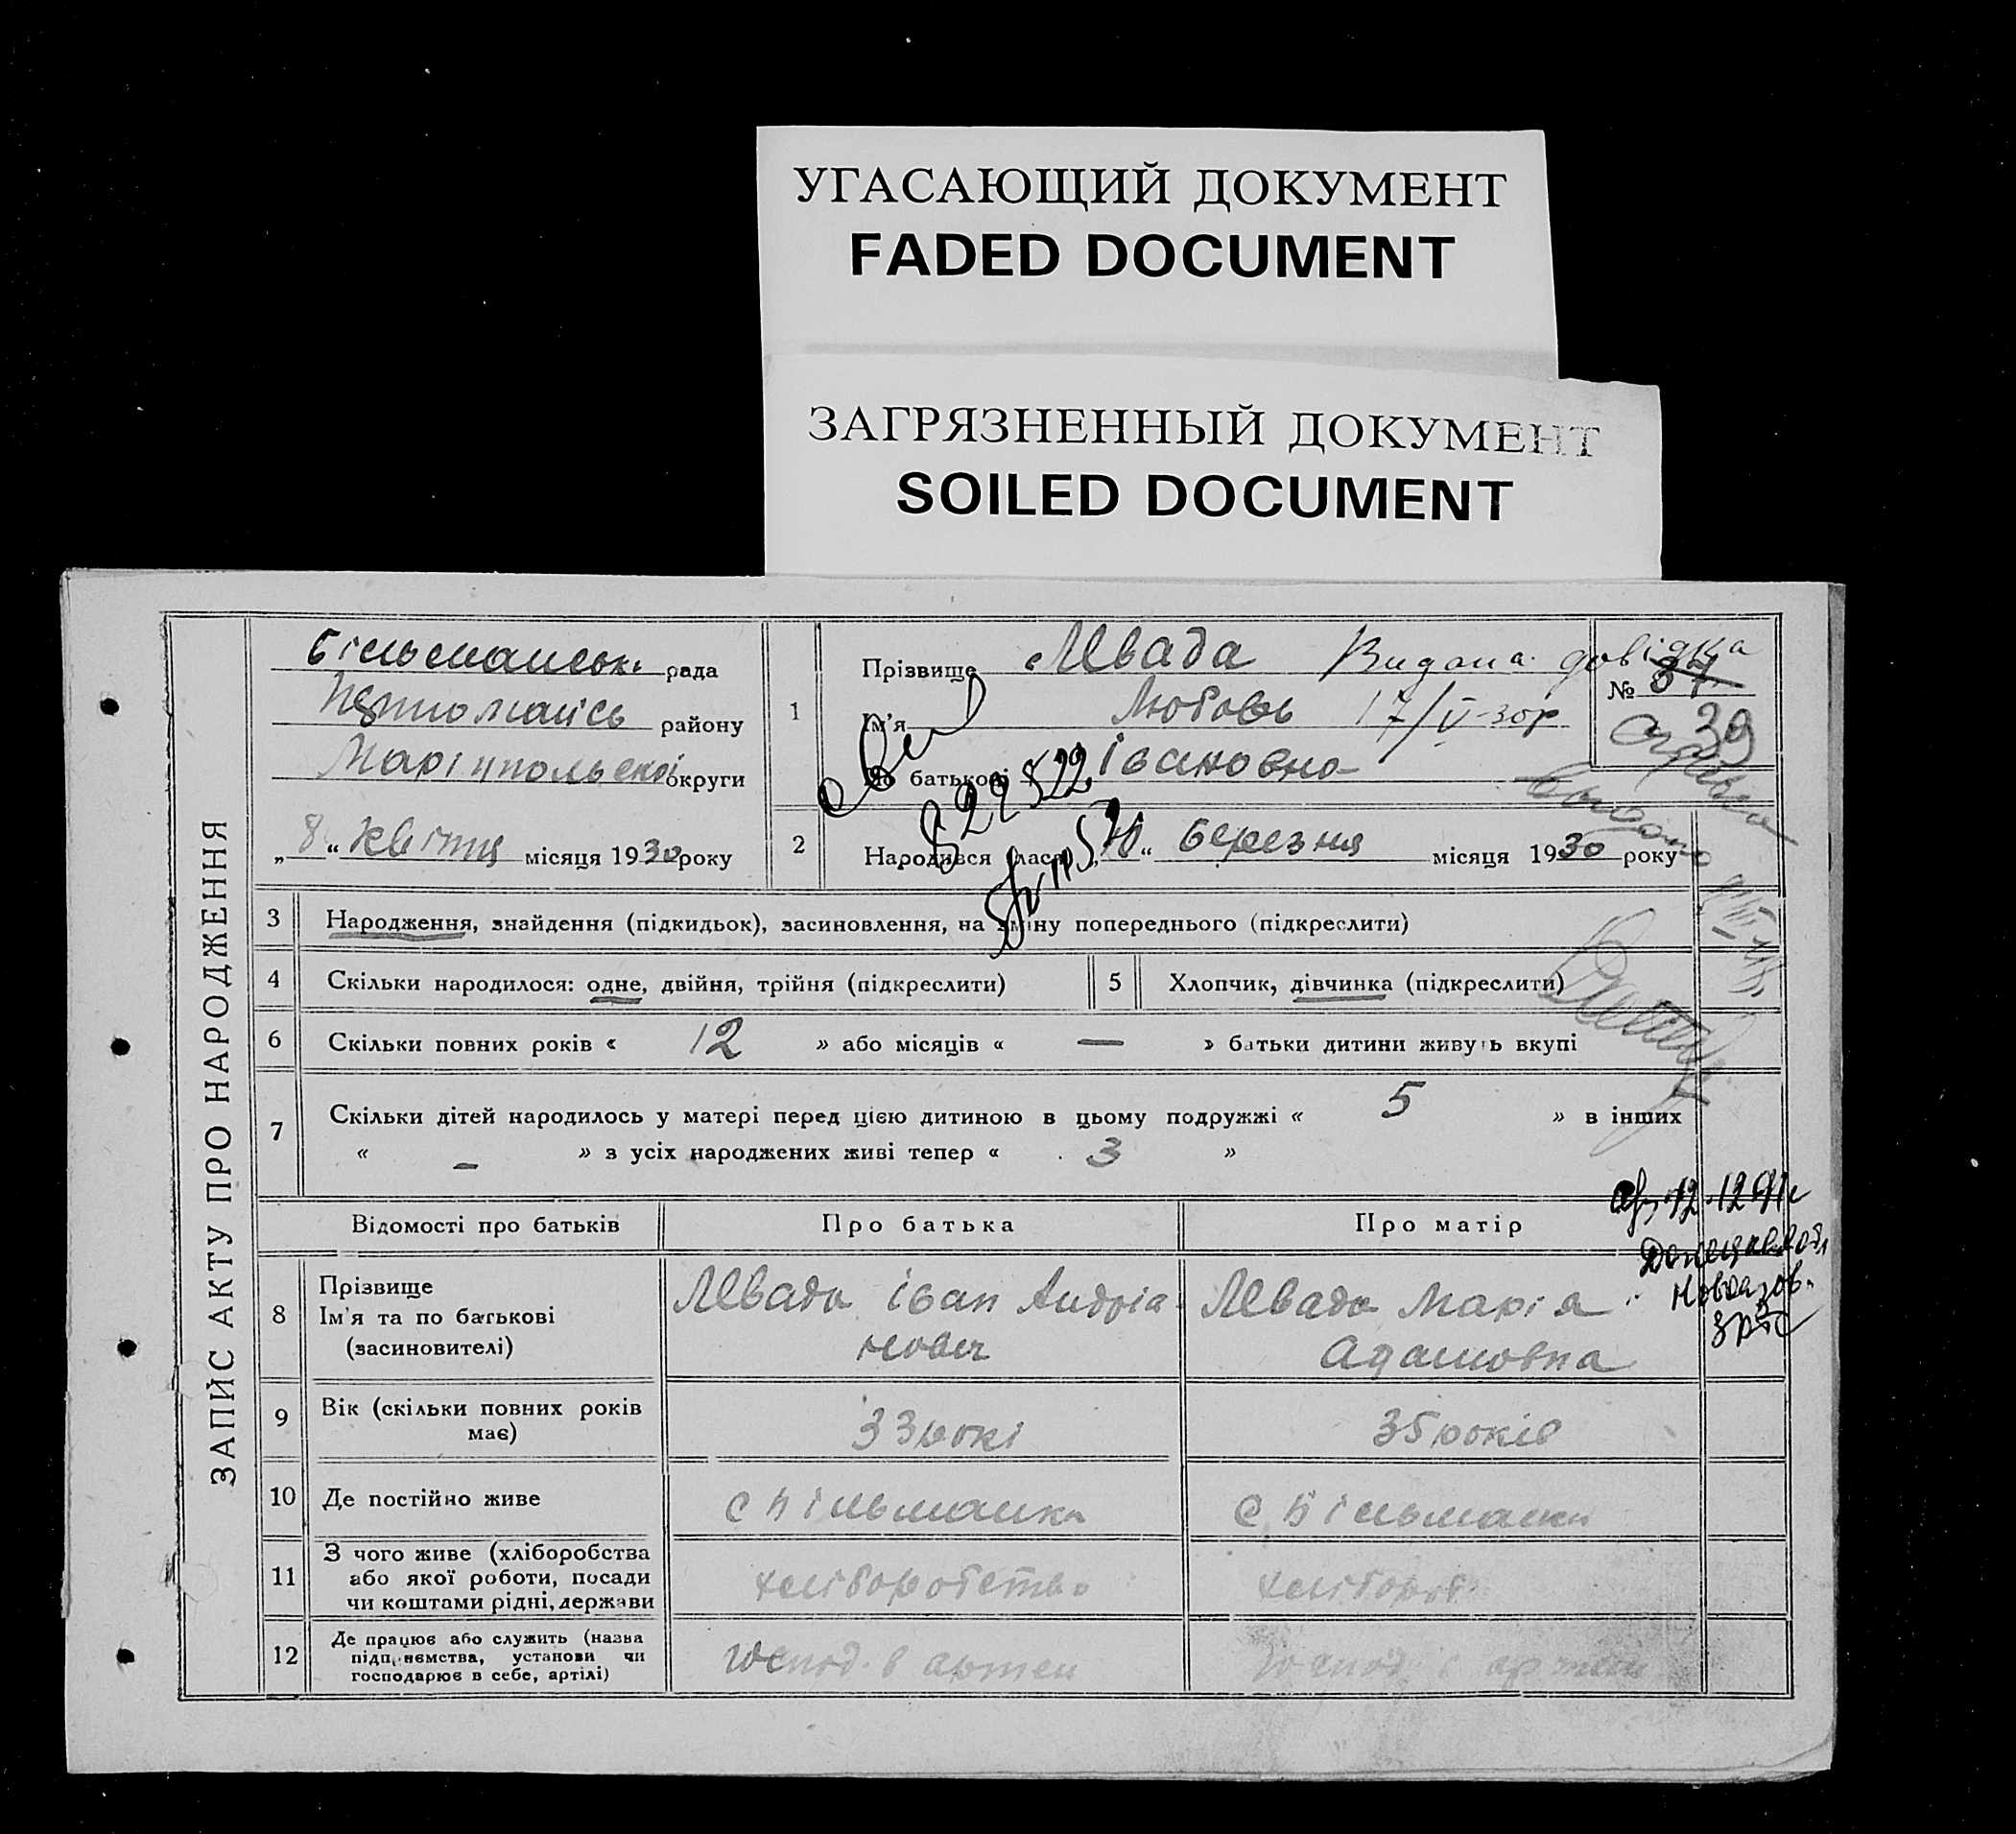 УГАСАЮЩИЙ ДОКУМЕНТ
FADED DOCUMENT
ЗАГРЯЗНЕННЫЙ ДОКУМЕНТ
SOILED DOCUMENT
ЗАПИС АКТУ ПРО НАРОДЖЕННЯ
рада
району
Маріупольської округи
„8“ квітня місяця 1930 року
1
Прізвище Левада Видана довідка
Ім'я Любовь 17/V-30р
По батькові Івановна
№ 37
39
2
Народився (лася) „ “ березня місяця 1930 року
3 Народження, знайдення (підкидьок), засиновлення, на зміну попереднього (підкреслити)
4 Скільки народилося: одне, двійня, трійня (підкреслити)
5 Хлопчик, дівчинка (підкреслити)
6 Скільки повних років « 12 » або місяців « — » батьки дитини живуть вкупі
7 Скільки дітей народилось у матері перед цією дитиною в цьому подружжі « 5 » в інших
« – » з усіх народжених живі тепер « 3 »
Відомості про батьків Про батька Про матір
8 Прізвище
Ім'я та по батькові
(засиновителі)
Левада Іван Андріа
нович
Левада Марія
Адамовна
9 Вік (скільки повних років
має)
33 рокі
35 років
10 Де постійно живе
с Більманка
с Більманка
11 З чого живе (хліборобства
або якої роботи, посади
чи коштами рідні, держави
хліборобство
хлібороб
12 Де працює або служить (назва
підприємства, установи чи
господарює в себе, артілі)
господ. в артел
господ. в артел